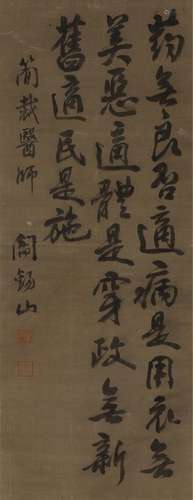 药無良否適病是用衣無
美惡適體是穿政無新
舊適民是施
簡裁醫師 閻錫山